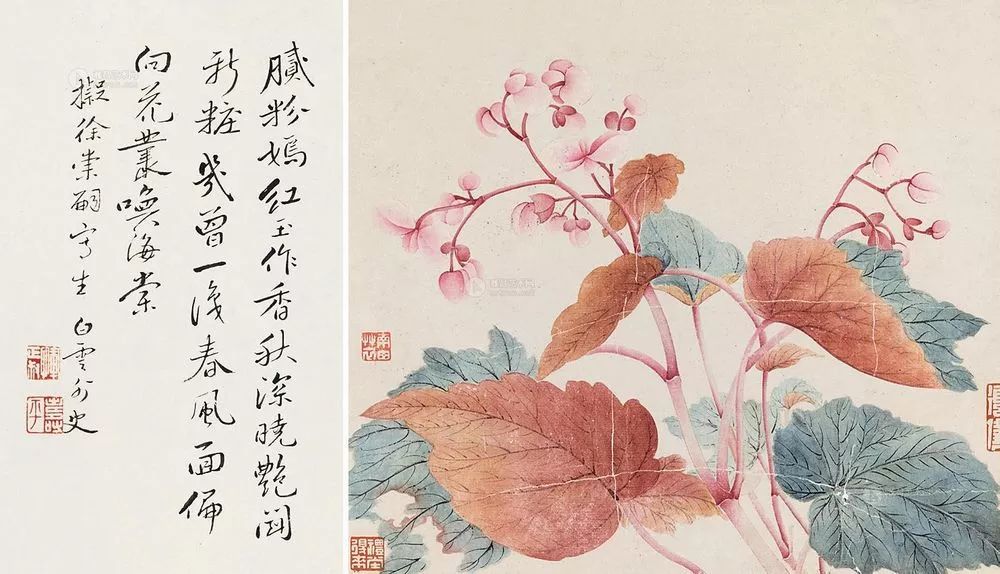 膩粉嫣紅玉作香秋深曉艷鬪
新粧幾曾一識春風面偏
向花叢喚海棠
擬徐崇嗣寫生 白雲外史
南田草衣